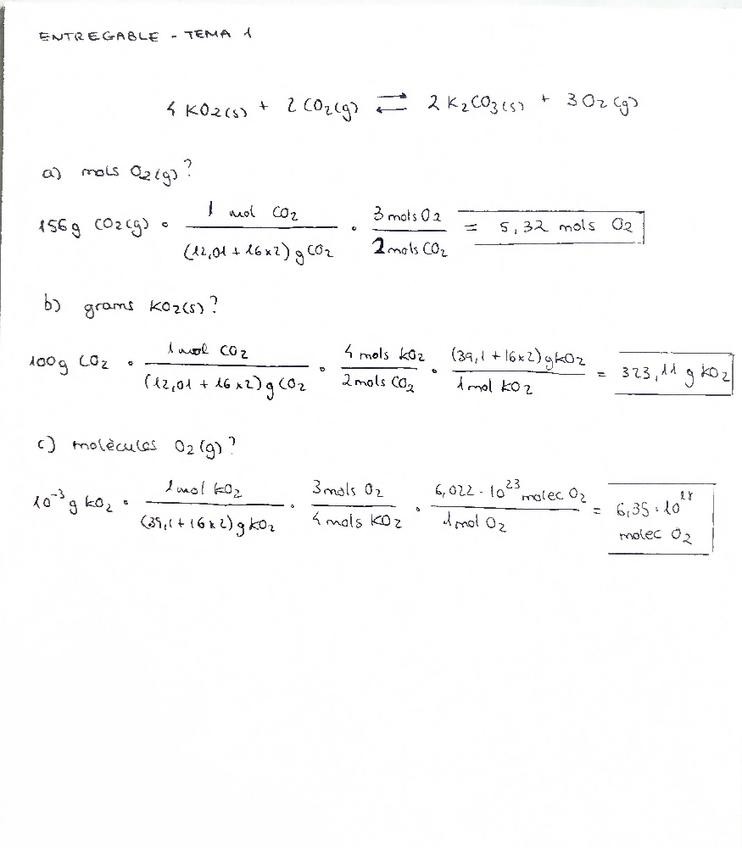 ENTREGABLE - TEMA 1
4 KO2(s) + 2 CO2(g) ⇄ 2 K2CO3(s) + 3 O2(g)
a) mols O2(g)?
156g CO2(g) · 1 mol CO2 / (12,01 + 16x2) g CO2 · 3 mols O2 / 2 mols CO2 = 5,32 mols O2
b) grams KO2(s)?
100g CO2 · 1 mol CO2 / (12,01 + 16x2) g CO2 · 4 mols KO2 / 2 mols CO2 · (39,1 + 16x2) g KO2 / 1 mol KO2 = 323,11 g KO2
c) molècules O2(g)?
10^-3 g KO2 · 1 mol KO2 / (39,1 + 16x2) g KO2 · 3 mols O2 / 4 mols KO2 · 6,022 · 10^23 molec O2 / 1 mol O2 = 6,35 · 10^18
molec O2